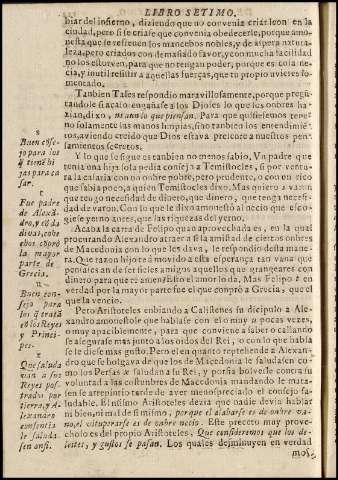 LIBRO SETIMO.
biar del infierno, diziendo que no convenia criar leon en la
ciudad, pero si se criase que convenia obedecerle, porque amo-
nesta que se refrenen los mancebos nobles, y de aspera natura-
leza, pero criados con demasiado favor, y con mucha facilidad
no los estorven, para que no tengan poder, porque es cola ne-
cia, y inutil resistir a aquellas fuerças, que tu propio uvieres fo-
mentado.
Tanbien Tales respondio maravillosamente, porque pregũ-
tandole si acaso engañase a los Dioses lo que los onbres ha-
zian, dixo, ni aun lo que piensan. Para que quisiesemos tener
no solamente las manos limpias, sino tanbien los entendimiē-
tos, aviendo creido que Dios estava presente a nuestros pen-
samientos secretos.
Y lo que se sigue es tanbien no menos sabio. Un padre que
tenia una hija sola pedia consejo a Temistocles, si por ventu-
ra la casaria con un onbre pobre, pero prudente, o con un rico
que sabia poco, a quien Temistocles dixo. Mas quiero a varon
que tengo necesidad de dinero, que dinero, que tenga necesi-
dad de varon. Con lo que dixo amonestò al necio que esco-
giese yerno antes, que las riquezas del yerno.
Acaba la carta de Felipo quan aprovechada es, en la qual
procurando Alexandro atraer a si la amistad de ciertos onbres
de Macedonia con lo que les dava, le respondio desta mane-
ra. Que razon hijo te à movido a esta esperança tan vana que
pensases an de ser fieles amigos aquellos que grangeares con
dinero para que te amen? Esto el amor lo da. Mas Felipo à en
verdad por la mayor parte fue el que conprò a Grecia, que el
que la vencio.
Pero Aristoteles enbiando a Calistenes su dicipulo a Ale-
xandro amonestole que hablase con el, o muy pocas vezes,
o muy apaciblemente, para que conviene a saber o callando
se alegurase mas junto a los oidos del Rei, o con lo que habla
se le diese mas gusto. Pero el en quanto reprehende a Alexan-
dro que se holgava de que los de Macedonia le saludasen co-
mo los Persas se saludan a su Rei, y porfia bolverle contra su
voluntad a las costunbres de Macedonia mandando le mata-
sen se arrepintio tarde de aver menospreciado el consejo sa-
ludable. El mismo Aristoteles dezia que nadie devia hablar
ni bien, ni mal de si mismo, porque el alabarse es de onbre va-
no, el vituperarse es de onbre necio. Este preceto muy prove-
choso es del propio Aristoteles, Que consideremos que los de-
leites, y gustos se pasan. Los quales desiminuyen en verdad
mos-
s
Buen cōse-
jo para los
q̃ tienē hi
jas para ca
sar.
t
Fue padre
de Alexā-
dro, y cō da
divas, cohe
chos cōprò
la mayor
parte de
Grecia.
u
Buen con-
sejo para
los q̃ tratā
cō los Reyes
y Princi-
pes.
x
Que saluda
van a sus
Reyes pos-
trados por
tierra, y A-
lexandro
consentia
le saluda-
sen ansi.